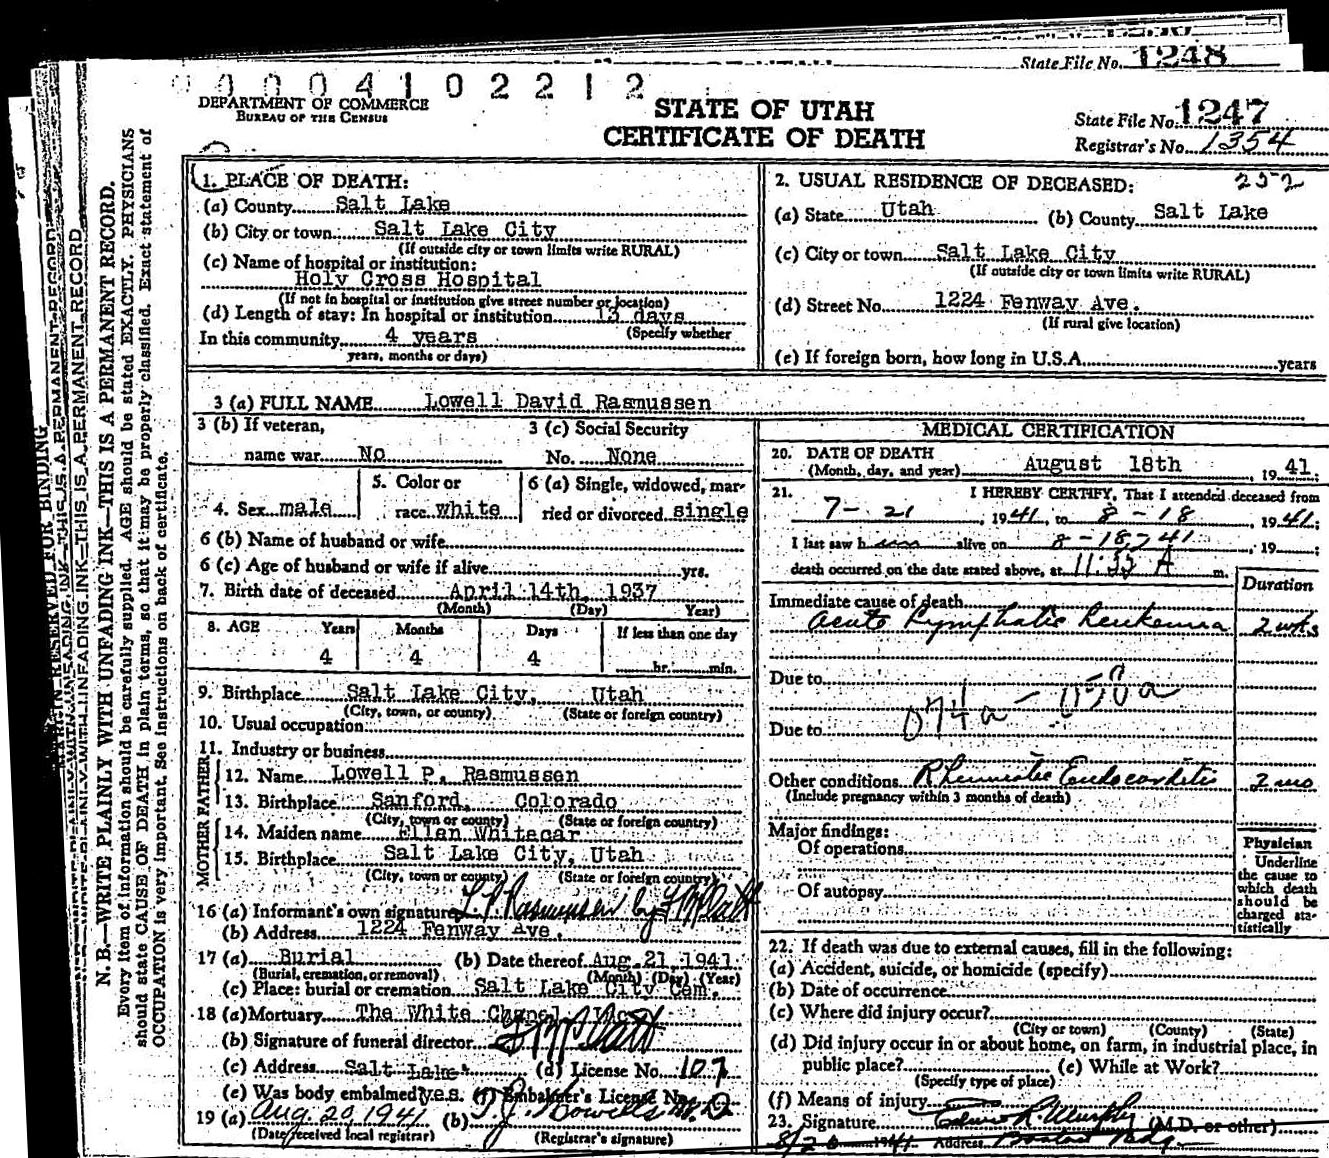 State File No. 1248
0 0 0 4 1 0 2 2 1 2
DEPARTMENT OF COMMERCE
BUREAU OF THE CENSUS
STATE OF UTAH
CERTIFICATE OF DEATH
State File No. 1247
Registrar's No. 1354
MARGIN RESERVED FOR BINDING
N. B.—WRITE PLAINLY WITH UNFADING INK—THIS IS A PERMANENT RECORD.
Every item of information should be carefully supplied. AGE should be stated EXACTLY. PHYSICIANS
should state CAUSE OF DEATH in plain terms, so that it may be properly classified. Exact statement of
OCCUPATION is very important. See instructions on back of certificate.
1. PLACE OF DEATH:
(a) County Salt Lake
(b) City or town Salt Lake City
(If outside city or town limits write RURAL)
(c) Name of hospital or institution:
Holy Cross Hospital
(If not in hospital or institution give street number or location)
(d) Length of stay: In hospital or institution 13 days
(Specify whether
In this community 4 years
years, months or days)
2. USUAL RESIDENCE OF DECEASED: 252
(a) State Utah (b) County Salt Lake
(c) City or town Salt Lake City
(If outside city or town limits write RURAL)
(d) Street No. 1224 Fenway Ave.
(If rural give location)
(e) If foreign born, how long in U.S.A. years
3 (a) FULL NAME Lowell David Rasmussen
3 (b) If veteran, 3 (c) Social Security
name war No No. None
4. Sex male
5. Color or
race white
6 (a) Single, widowed, mar-
ried or divorced single
6 (b) Name of husband or wife
6 (c) Age of husband or wife if alive yrs.
7. Birth date of deceased April 14th, 1937
(Month) (Day) Year)
8. AGE Years Months Days If less than one day
4 4 4 hr. min.
9. Birthplace Salt Lake City, Utah
(City, town, or county) (State or foreign country)
10. Usual occupation
11. Industry or business
FATHER
12. Name Lowell P. Rasmussen
13. Birthplace Sanford, Colorado
(City, town or county) (State or foreign country)
MOTHER
14. Maiden name Ellen Whitecar
15. Birthplace Salt Lake City, Utah
(City, town or county) (State or foreign country)
16 (a) Informant's own signature L. P. Rasmussen by
(b) Address 1224 Fenway Ave.
17 (a) Burial (b) Date thereof Aug. 21, 1941
(Burial, cremation, or removal) (Month) (Day) (Year)
(c) Place: burial or cremation Salt Lake City Cem.
18 (a) Mortuary The White Chapel
(b) Signature of funeral director
(c) Address Salt Lake (d) License No. 107
(e) Was body embalmed? yes. (f) Embalmer's License No.
19 (a) Aug. 20, 1941 (b) T. J. Howells M.D.
(Date received local registrar) (Registrar's signature)
MEDICAL CERTIFICATION
20. DATE OF DEATH
(Month, day, and year) August 18th 19 41.
21. I HEREBY CERTIFY, That I attended deceased from
7 - 21, 1941, to 8 - 18, 1941;
I last saw him alive on 8 - 18, 41, 19 ;
death occurred on the date stated above, at 11:55 A m.
Duration
Immediate cause of death
Acute Lymphatic Leukemia 2 wks
Due to
074a - 058a
Due to
Other conditions Rheumatic Endocarditis 2 mo
(Include pregnancy within 3 months of death)
Major findings:
Of operations
Of autopsy
Physician
Underline
the cause to
which death
should be
charged sta-
tistically
22. If death was due to external causes, fill in the following:
(a) Accident, suicide, or homicide (specify)
(b) Date of occurrence
(c) Where did injury occur?
(City or town) (County) (State)
(d) Did injury occur in or about home, on farm, in industrial place, in
public place? (e) While at Work?
(Specify type of place)
(f) Means of injury
23. Signature R. Murphy (M.D. or other)
8/20 1941. Address Boston Bldg.